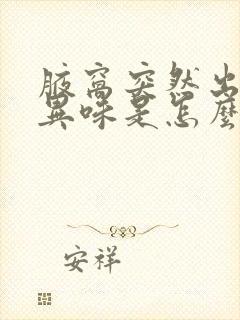 腋窩突然出
異味是怎麼
安祥